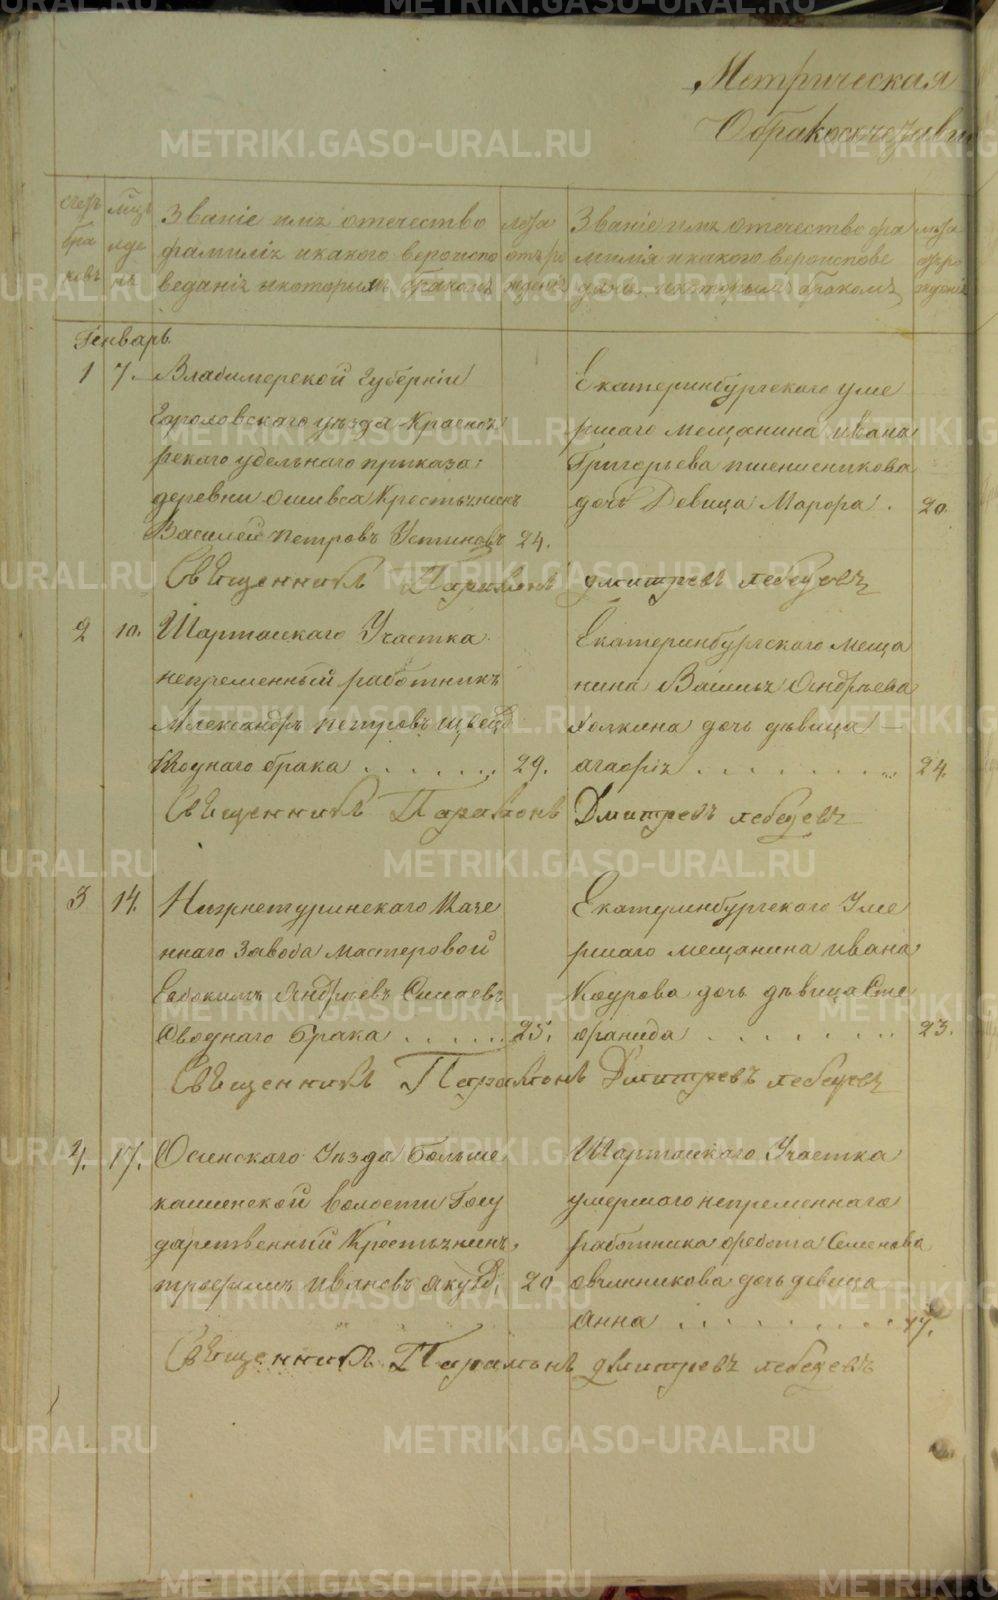 Метрическая
О бракосочетавши
счетъ браковъ
Званіе имя отечество
фамилія и какого вероиспо
веданія и которымъ бракомъ
лета отъ рожденія
Званіе имя отечество фа
милія и какого вероиспове
данія и которымъ бракомъ
Генварь
1 7. Владимерской Губерніи
Гороховскаго уѣзда Красносе
рскаго удельнаго приказа:
деревни Крестьянинъ
Василей петровъ Устиновъ 24.
Екатеринбургскаго уме
ршаго мещанина ивана
Григорьева пшенисникова
дочь Девица Марфа. 20.
Священникъ Парамонъ дмитревъ лебедевъ
2 10. Шарташскаго Участка
непременный работникъ
Александръ петровъ
Своднаго брака . . . . . . . 29.
Екатеринбургскаго меща
нина Василья Ондрѣева
Холкина дочь дѣвица —
агафія . . . . . . . . . 24.
Священникъ Парамонъ Дмитревъ лебедевъ
3 14. Нижнетуринскаго Казе
ннаго Завода мастеровой
Евдокимъ Андреевъ
Своднаго Брака . . . . . . 25.
Екатеринбургскаго Уме
ршаго мещанина ивана
дочь дѣвица Сте
фанида . . . . . . . . 23.
Священникъ Парамонъ Дмитревъ лебедевъ
4. 17. Осинскаго Уѣзда Больше
волости Госу
дарственный Крестьянинъ
трофимъ ивановъ 20
Шарташскаго Участка
умершаго непременнаго
работника федота Семенова
овчинникова дочь девица
анна . . . . . . . . . . 17.
Священникъ Парамонъ дмитревъ лебедевъ
METRIKI.GASO-URAL.RU